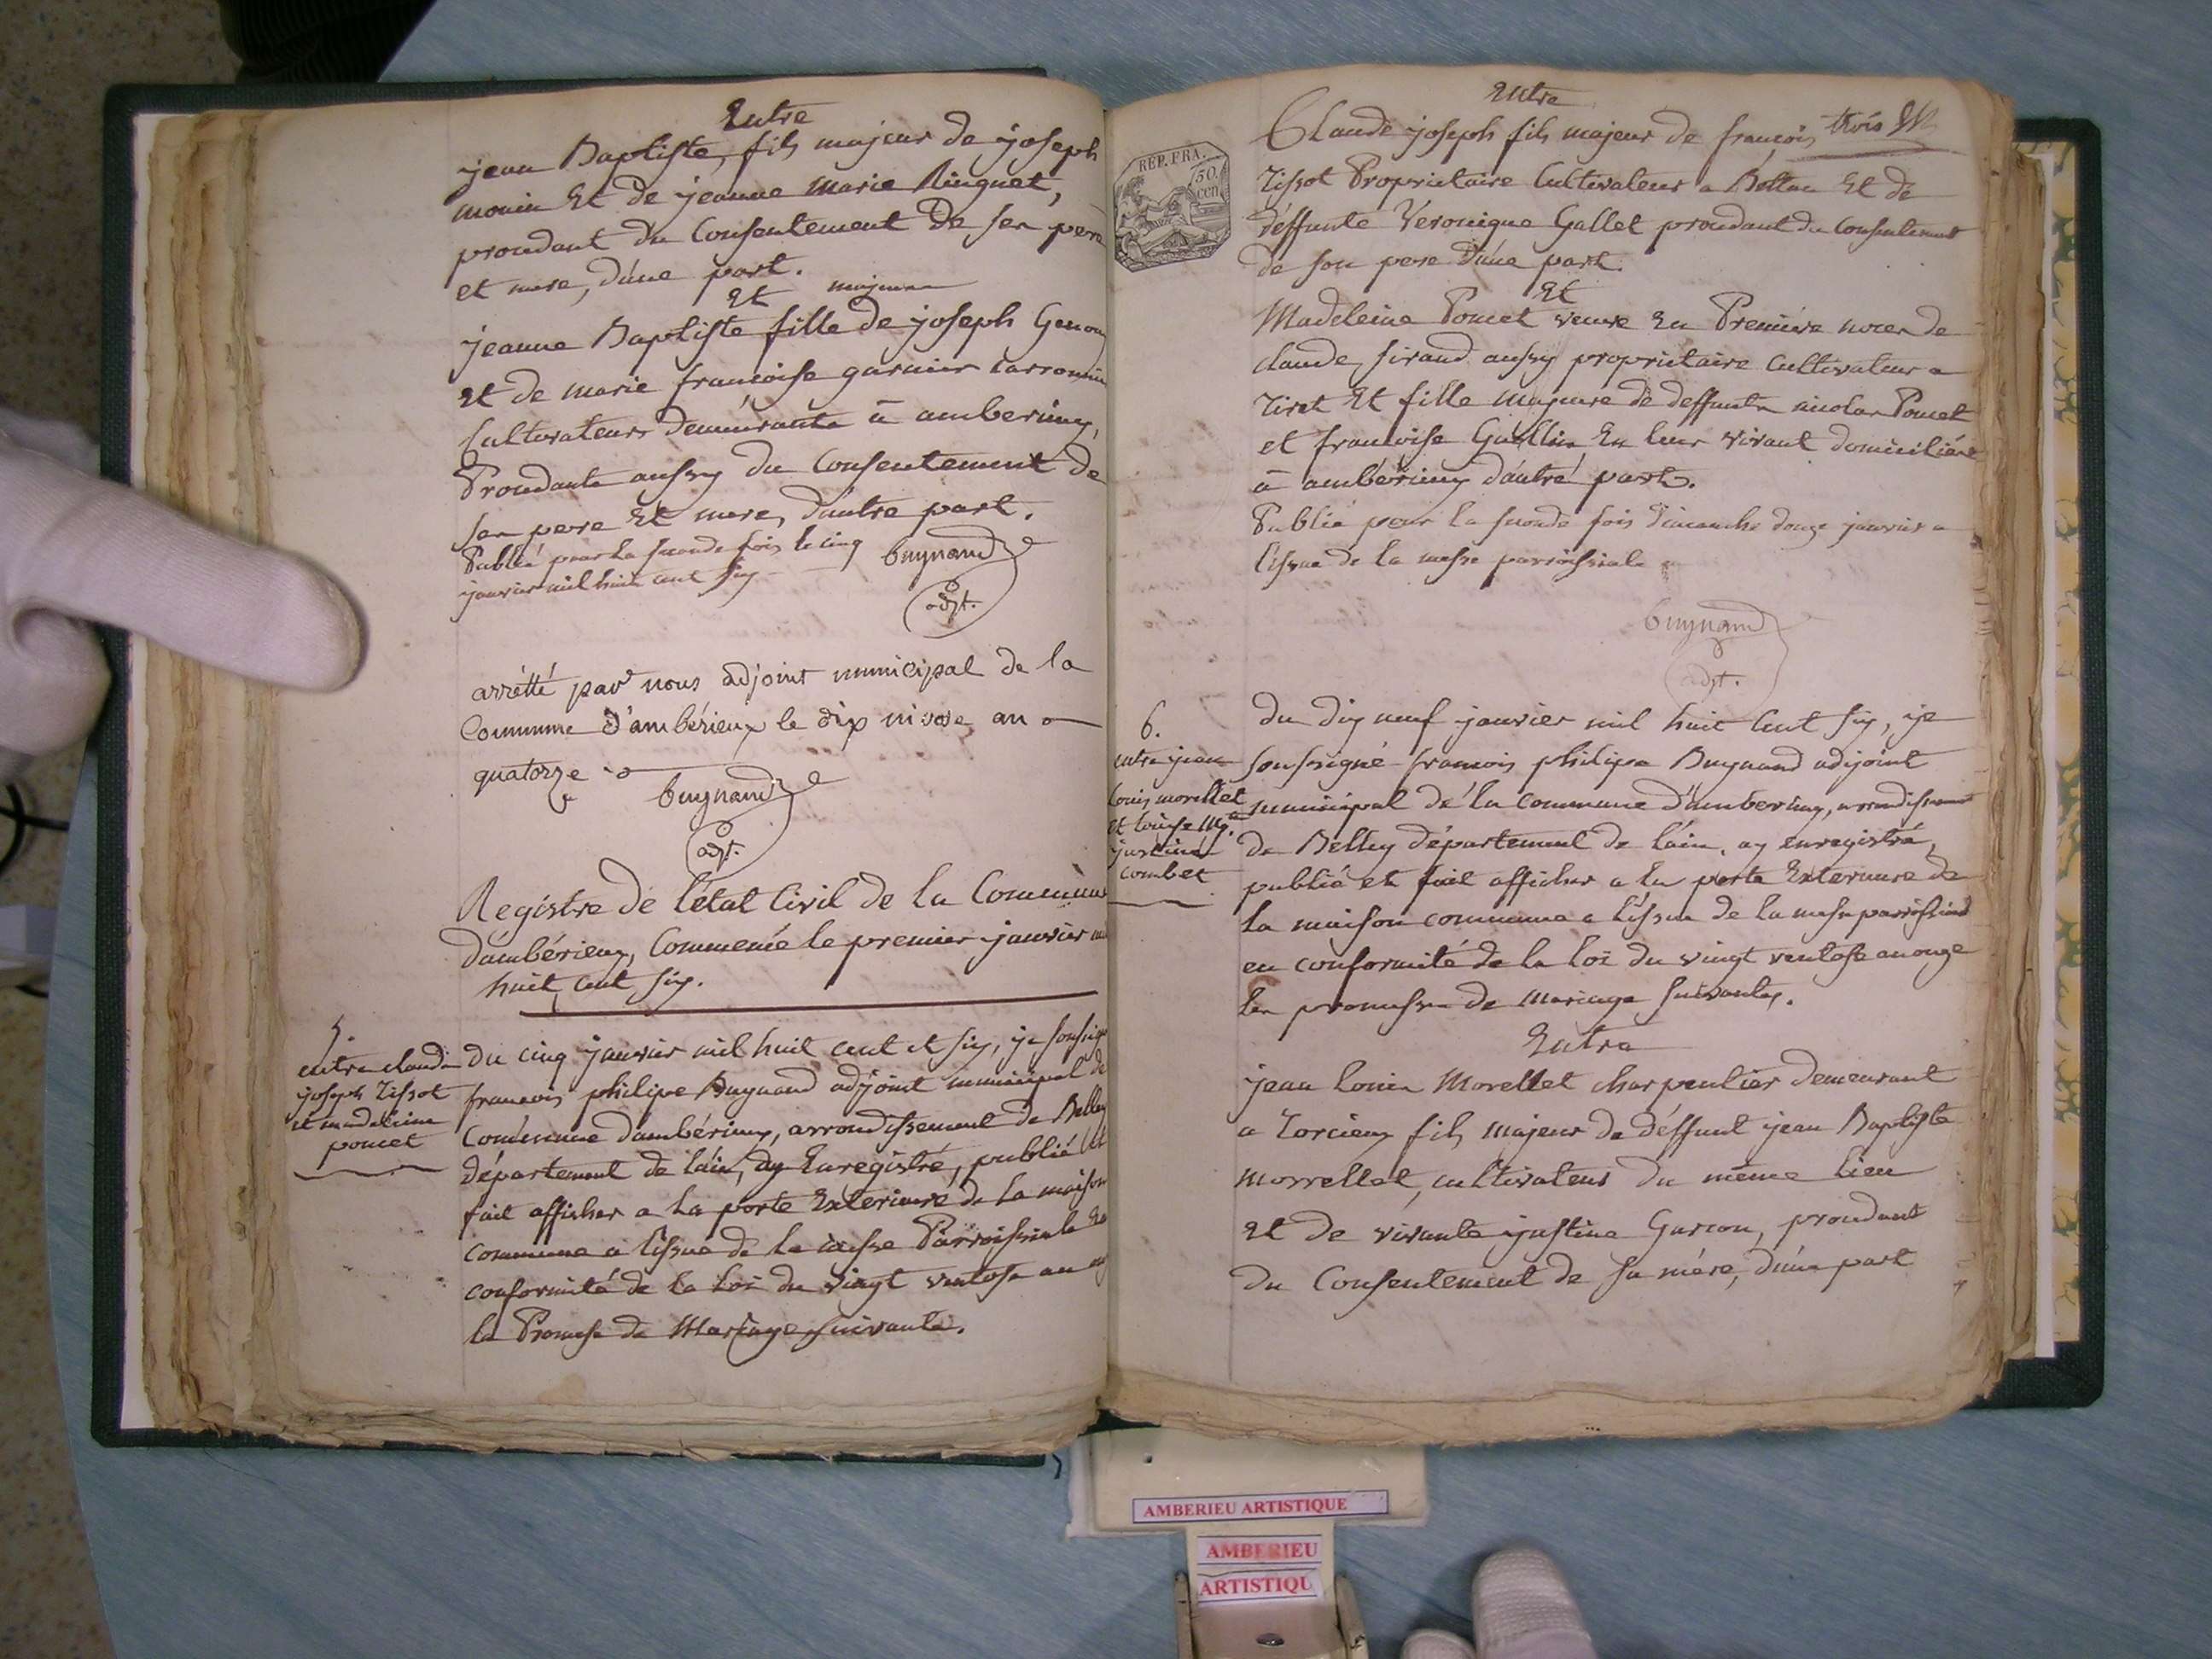 Entre
jean Baptiste, fils majeur de joseph
monin Et de jeanne Marie Ringuet,
proudant du Consentement De ses pere
et mere, d'une part.
Et majeure
jeanne Baptiste fille de joseph Genou
et de marie françoise garnier
Cultivateurs demeurants à amberieux,
Proudante aussy du Consentement de
ses pere Et mere, d'autre part.
Publié pour la seconde fois le cinq
janvier mil huit cent six
buynand
adjt.
arrêtté par nous adjoint municipal de la
Commune d'ambérieux le dix nivose an
quatorze
buynand
adjt.
Registre de l'état Civil de la Commune
d'ambérieux, Commencé le premier janvier
huit cent six.
5.
entre claude
joseph Tissot
et madeleine
poncet
du cinq janvier mil huit cent et six, je
françois philipe Buynand adjoint municipal de
Commune d'ambérieux, arrondissement de Belley
département de l'ain, ay Enregistré, publié et
fait afficher a la porte Exterieure de la maison
commune a l'issue de la messe Parroissiale
conformité de la Loi du vingt ventose an
la Promesse de Mariage suivante.
Entre
Claude joseph fils majeur de françois trois
REP. FRA.
50.
cen
Tissot Proprietaire Cultivateur a Et de
déffunte Veronique Gallet proudant du consentement
de son pere d'une part.
Et
Madeleine Poncet veuve En Premiére noces de
claude, sirand aussy proprietaire Cultivateur a
Tiret Et fille majeure de deffunts nicolas Poncet
et françoise En leur vivant domiciliés
à ambérieux d'autre part.
Publié pour la seconde fois dimanche douze janvier a
l'issue de la messe parroissiale
buynand
adjt.
6.
entre jean
louis morellet
et louise
justine
combet
du dix neuf janvier mil huit Cent six, je
soussigné françois philipe Buynand adjoint
municipal de la commune d'amberieux, arrondissement
de Belley département de l'ain, ay enregistré,
publié et fait afficher a la porte Exterieure de
la maison commune a l'issue de la messe parroissiale
en conformité de la Loi du vingt ventose an onze
les promesses de Mariage suivantes.
Entre
jean Louis Morellet charpentier demeurant
a Torcieux fils majeur de déffunt jean Baptiste
morrellet, cultivateur du même Lieu
et de vivante justine Garcon, proudant
du Consentement de sa mére, d'une part
AMBERIEU ARTISTIQUE
AMBERIEU
ARTISTIQU